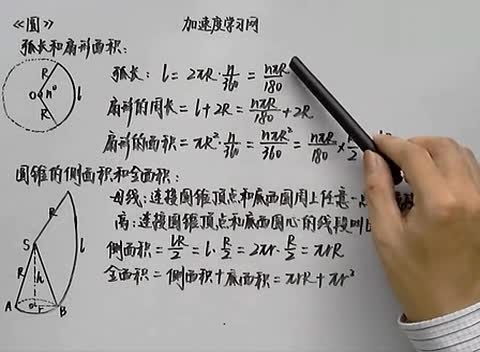 《圆》 加速度学习网
弧长和扇形面积:
弧长: l = 2πR·n/360 = nπR/180
扇形的周长 = l + 2R = nπR/180 + 2R
扇形的面积 = πR²·n/360 = nπR²/360 = nπR/180 ×
R
O n° l
R
圆锥的侧面积和全面积:
母线: 连接圆锥顶点和底面圆周上任意一
高: 连接圆锥顶点和底面圆心的线段
侧面积 = lR/2 = l·R/2 = 2πr·R/2 = πrR
全面积 = 侧面积 + 底面积 = πrR + πr²
R
S l
R h
A O r B